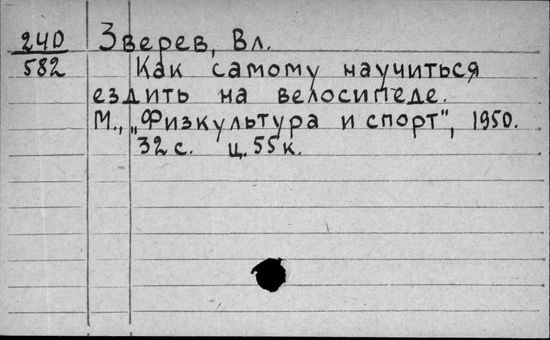 240 Зверев, Вл.
582 Как самому научиться
ездить на велосипеде.
М., „Физкультура и спорт", 1950.
32 с. ц. 55 к.